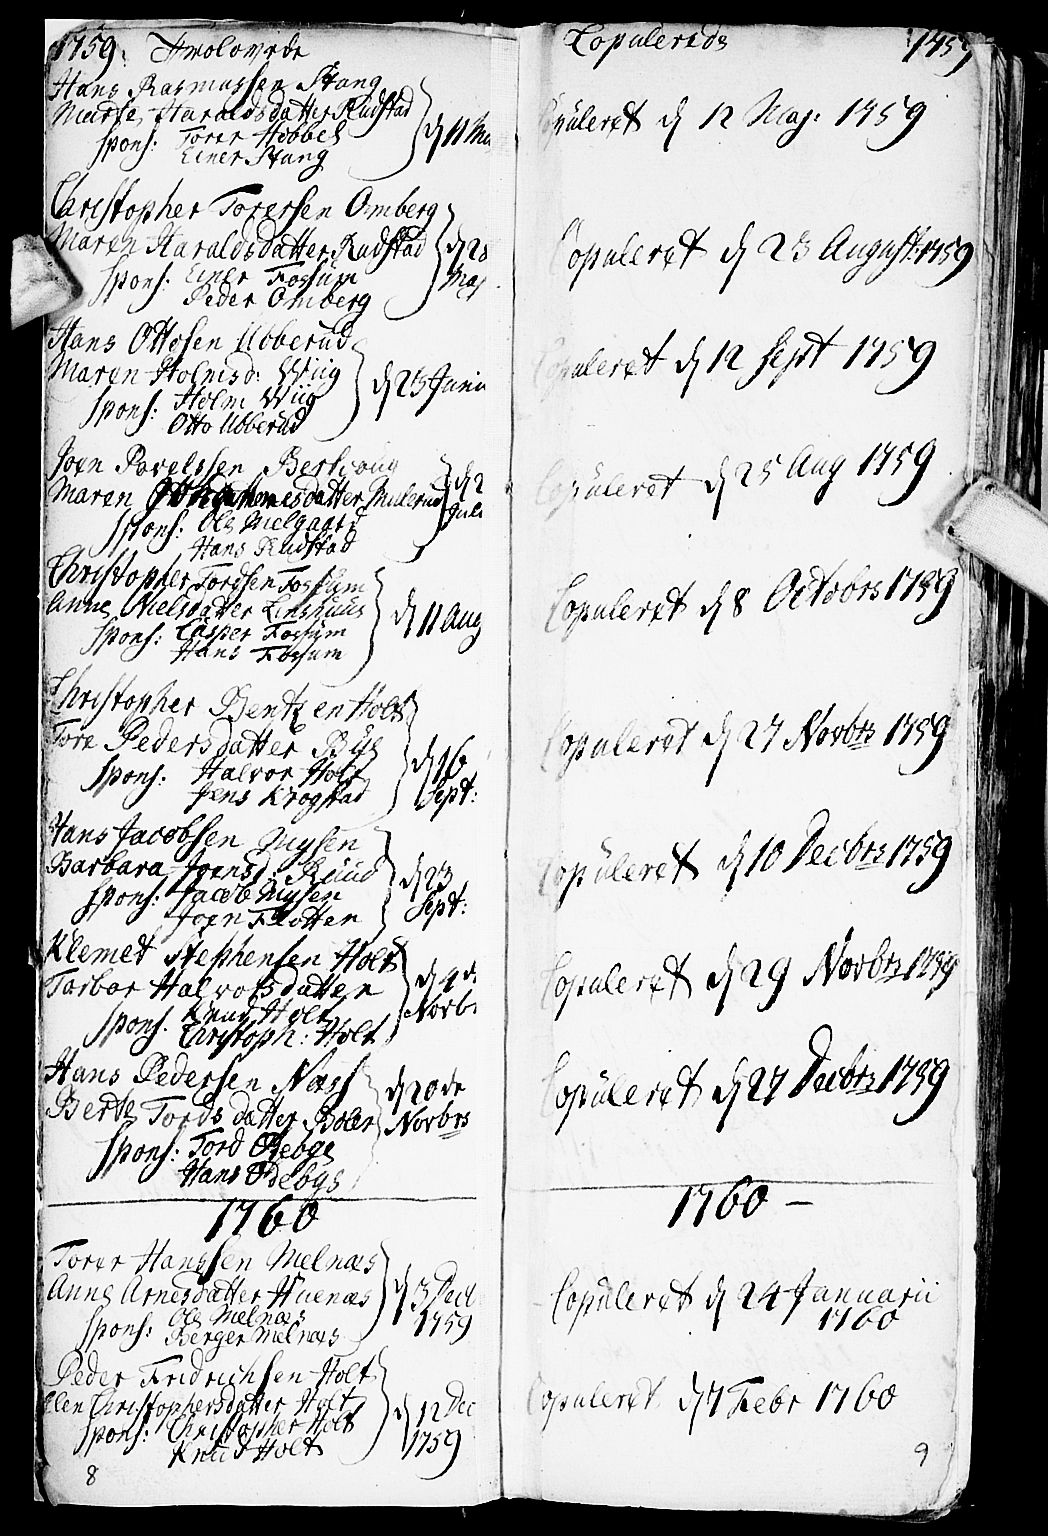 1759. Trolovede
Hans Rasmussen Stang
Marte Haraldsdatter Rudstad
spons: Torer Hobbel
Einer Stang
d 11 Ma
Christopher Torersen Omberg
Maren Haraldsdatter Rudstad
spons: Einer Fossum
Peder Omberg
d 28
Maj
Hans Ottosen Ubberud
Maren Holmsd: Wiig
spons: Holm Wiig
Otto Ubberud
d 23 Juni
Joen Povelssen
Maren datter Mulerud
spons: Ole Melgaard
Hans Rudstad
d 2
Juli
Christopher Tordsen Fossum
Anne Nielsdatter
spons: Casper Fossum
Hans Fossum
d 11 Aug
Christopher Bentzen Holt
Tore Pedersdatter Bye
spons: Halvor Holt
Jens Krogstad
d 16
Sept:
Hans Jacobsen Mysen
Barbara Joensd: Ruud
spons: Jacob Mysen
Joen Flotten
d 23
Sept:
Klemet Stephensen Holt
Torbor Halvorsdatter
spons. Knud Holt
Christoph: Holt
d 4 d
Novb
Hans Pedersen Næss
Berte Tordsdatter Boler
spons: Tord Rebge
Hans
d 20 de
Novbrs
1760
Torer Hanssen Melnæs
Anne Arnesdatter Huenæs
spons: Ole Melnæs
Berger Melnæs
d 3 Decb
1759
Peder Fridrichsen Holt
Elen Christophersdatter Holt
spons: Christopher Holt
Knud Holt
d 12 Dec
1759
8
Copulerede 1759
Copuleret d 12 Maj: 1759
Copuleret d 23 August: 1759
Copuleret d 12 Sept 1759
Copuleret d 25 Aug 1759
Copuleret d 8 Octobrs 1759
Copuleret d 27 Novbrs 1759
Copuleret d 10 Decbrs 1759
Copuleret d 29 Novbrs 1759
Copuleret d 27 Decbrs 1759
1760 –
Copuleret d 24 Januarii
1760
Copuleret d 7 Febr 1760
9